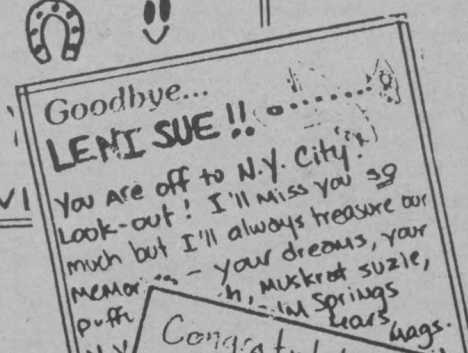 Goodbye...
LENI SUE!!
VI
You are off to N.Y. City!
Look-out! I'll miss you so
much but I'll always treasure our
memor - your dreams, your
puff h, muskrat suzie,
lm Springs
years, hugs.
Congrat